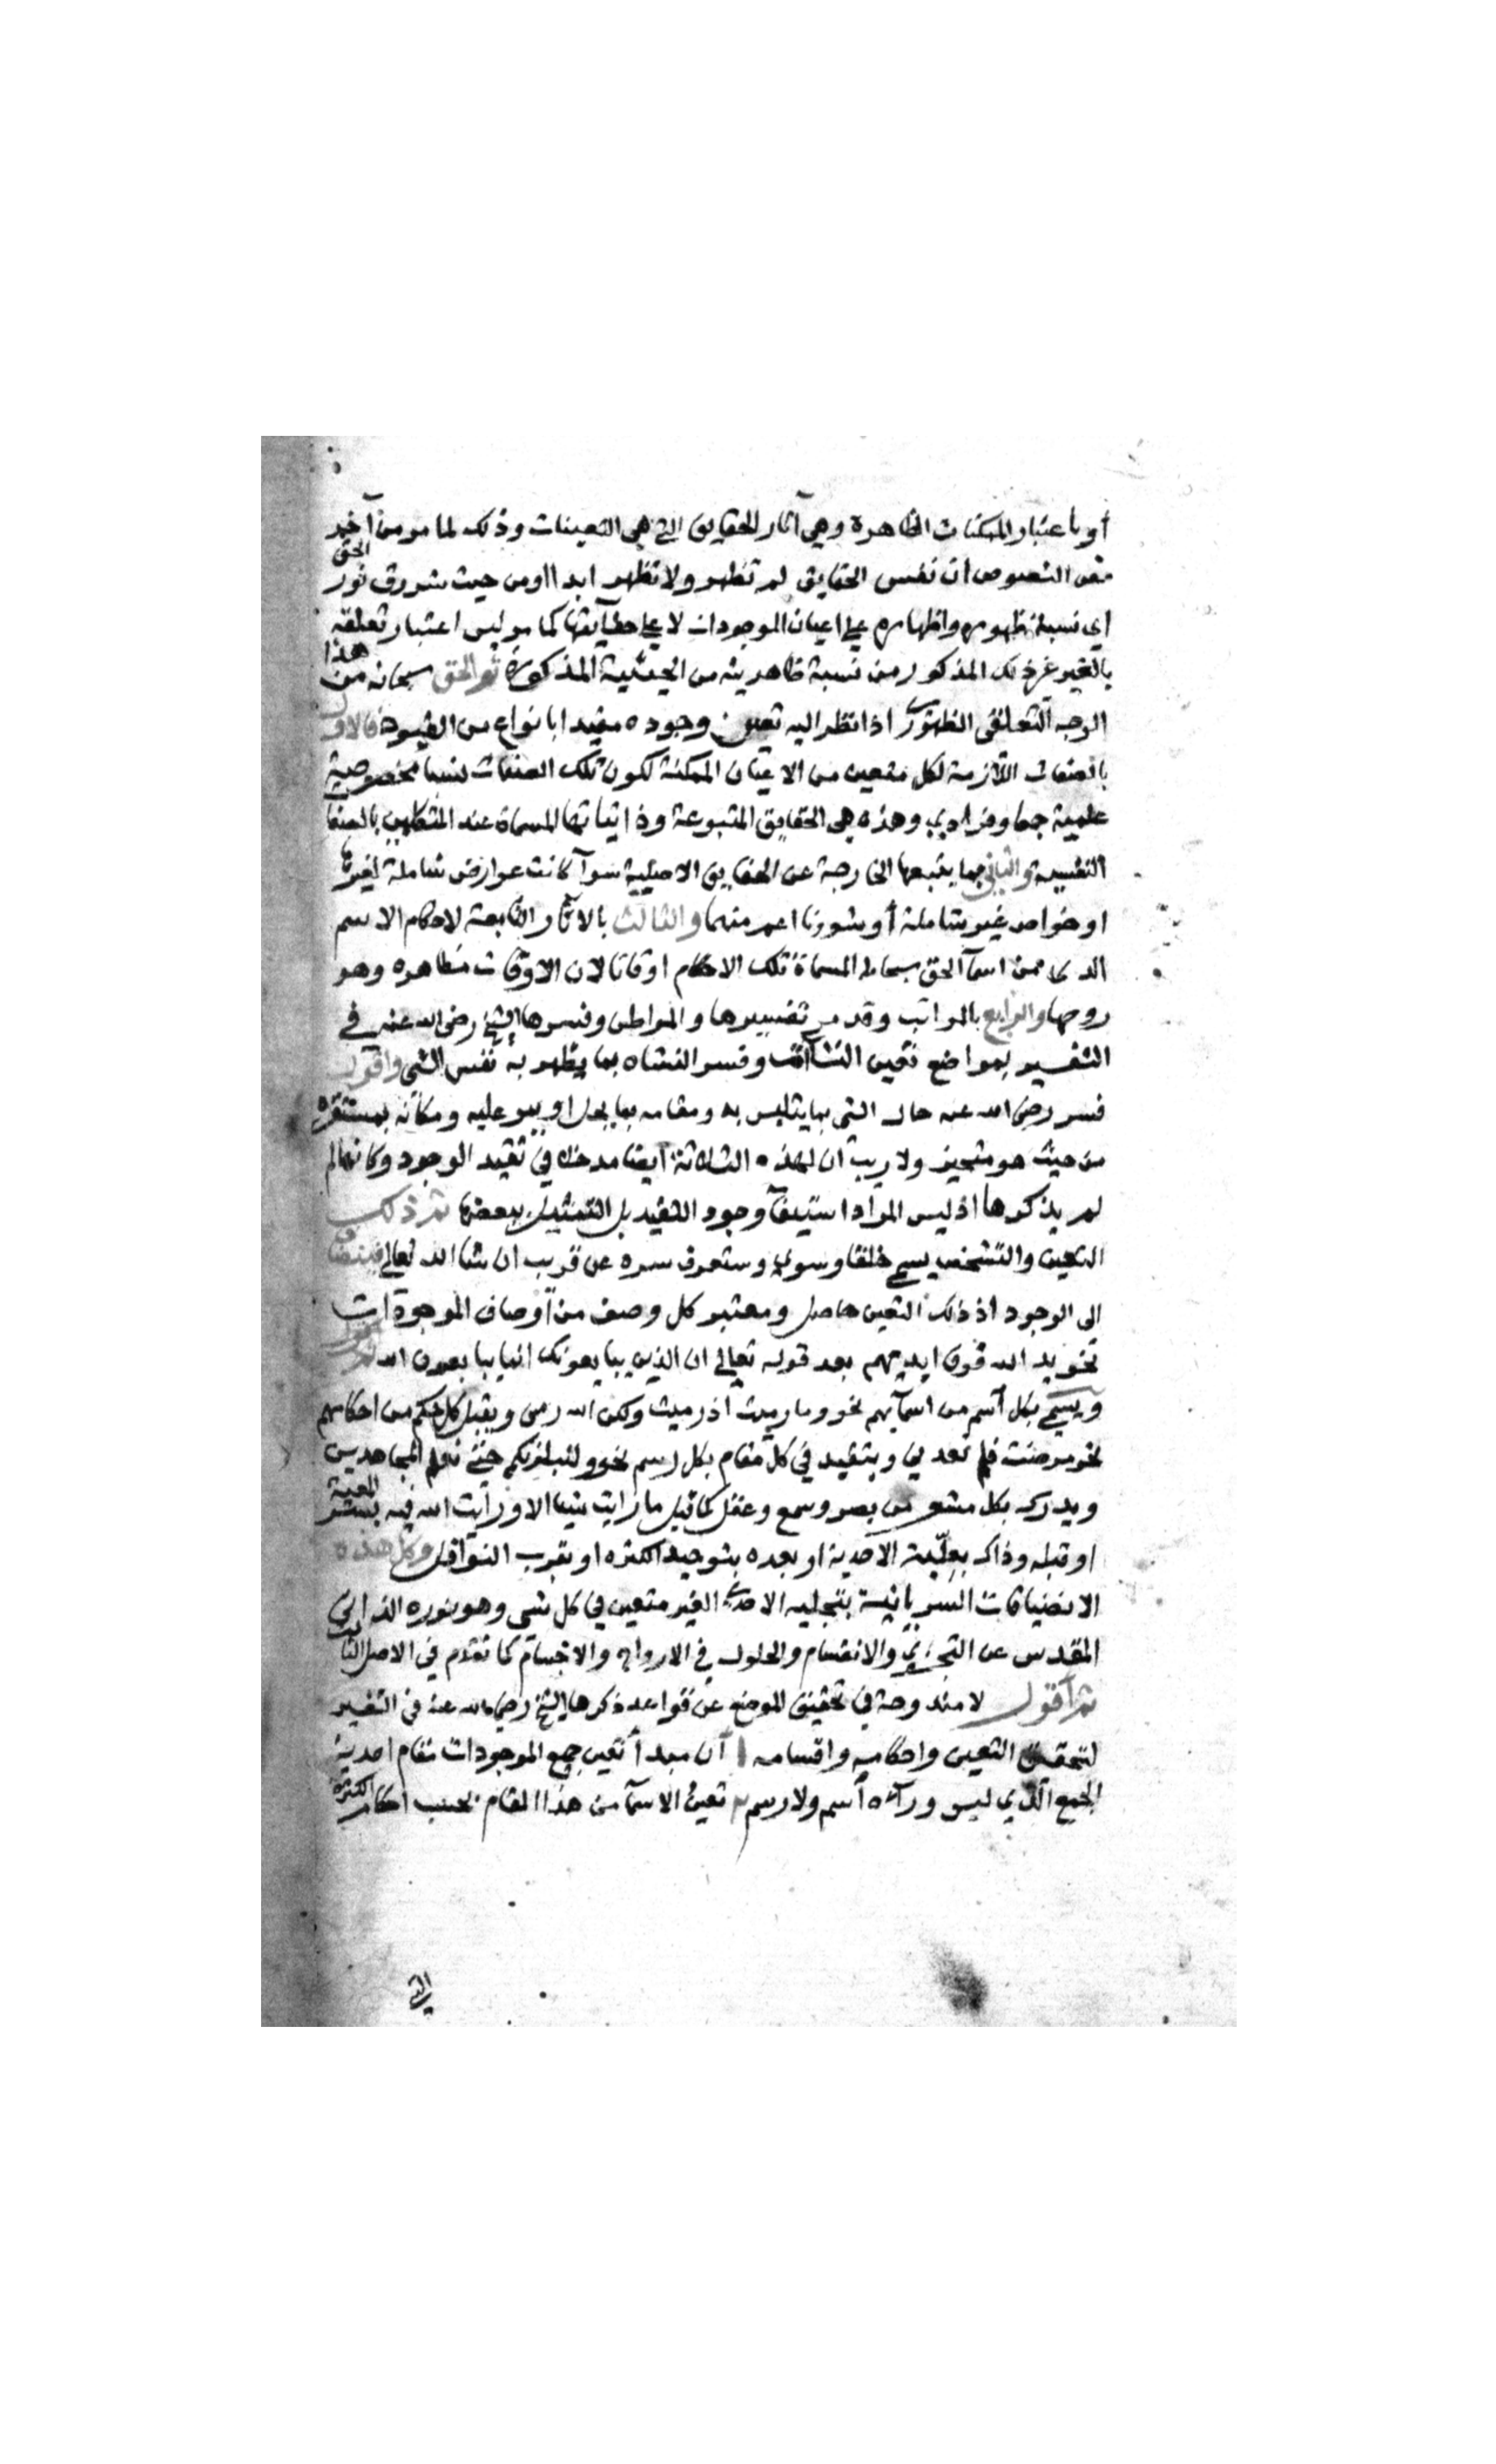 أو باعتبار الممكنات الظاهرة وهي آثار الحقايق التي هي التعينات وذلك لما مر من آخر
نص النصوص ان نفس الحقايق لم تظهر ولا تظهر ابدا اومن حيث شروق نور الحق
اي نسبة ظهوره واظهاره على اعيان الموجودات لا على حقآيقها كما مر ليس اعتبار تعلقه
بالغير غير ذلك المذكور من نسبة ظاهريته من الحيثية المذكورة ثم الحق سبحانه من هذا
الوجه التعلقى الظهوري اذا نظر اليه تعين وجوده مقيدا بانواع من القيود فالاول
بالصفات اللازمة لكل متعين من الاعيان الممكنة لكون تلك الصفات نسبا مخصوصية
علمية جمعا وفرادي وهذه هي الحقايق المتبوعة وذاتياتها المسماة عند المتكلمين بالصفا
النفسية والثاني بما يتبعها الخارجة عن الحقايق الاصلية سوآ كانت عوارض شاملة لغيرها
او خواص غير شاملة أو شوونا اعم منهما والثالث بالاثار التابعة لاحكام الاسم
الدهر من اسمآ الحق سبحانه المسماة تلك الاحكام اوقاتا لان الاوقات مظاهره وهو
روحها والرابع بالمراتب وقد مر تفسيرها والمواطن وفسرها الشيخ رضى الله عنه في
التفسير بمواضع تعين النشآت وفسر النشاه بما يظهر به نفس الشي واقول
فسر رضى الله عنه حال الشي بما يتلبس به ومقامه بما يحل او يبر عليه ومكانه بمستقره
من حيث هو متحيز ولا ريب ان لهذه الثلاثة ايضا مدخلا في تقيد الوجود وكانها لم
لم يذكرها اذ ليس المراد استيفآ وجوه التقيد بل التمثيل ببعضها ثم ذلك
التعين والتشخص يسمى خلقا وسوى وستعرف سره عن قريب ان شا الله تعالى فينضاف
الى الوجود اذ ذلك التعين حاصل ومعتبر كل وصف من أوصاف الموجودات
نحو يد الله فوق ايديهم بعد قوله تعالى ان الذين يبايعونك انما يبايعون الله
ويسمى بكل أسم من اسمآيهم نحو وما رميت اذ رميت ولكن الله رمى ويقبل كل حكم من احكامهم
نحو مرضت فلم تعدني ويتقيد في كل مقام بكل رسم نحو ولنبلونكم حتى نعلم المجاهدين
ويدرك بكل مشعر من بصر وسمع وعقل كما قيل ما رايت شيا الا ورايت الله فيه بسر المعية
او قبله وذاك بعلّية الاحدية او بعده بتوحيد الكثره او بقرب النوافل وكل هذه
الانضيافات السريانية بتجليه الاحدى الغير متعين في كل شى وهو نوره الذاتي
المقدس عن التجزي والانقسام والحلول في الارواح والاجسام كما تقدم في الاصل الثالث
ثم أقول لا مندوحة في تحقيق الموضع عن قواعد ذكرها الشيخ رضي الله عنه في التفسير
لتحقيق التعين واحكامه واقسامه ا أن مبدأ تعين جميع الموجودات مقام احدية
الجمع الذي ليس ورآه أسم ولا رسم ٢ تعين الاسمآ من هذا المقام بحسب احكام الكثرة
التي